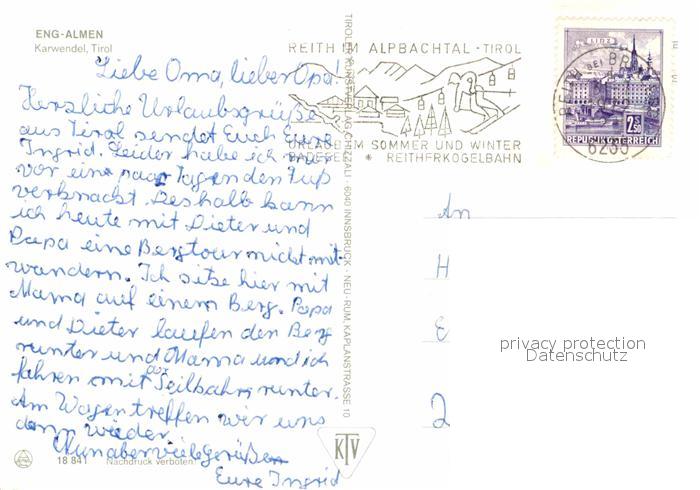 ENG-ALMEN
Karwendel, Tirol
Liebe Oma, lieber Opa!
Herzliche Urlaubsgrüße
aus Tirol sendet Euch Eure
Ingrid. Leider habe ich mir
vor ein paar Tagen den Fuß
verknackt. Deshalb kann
ich heute mit Dieter und
Papa eine Bergtour nicht mit-
wandern. Ich sitze hier mit
Mama auf einem Berg. Papa
und Dieter laufen den Berg
runter und Mama und ich
fahren mit der Seilbahn runter.
Am Wagen treffen wir uns
dann wieder.
Nun aber viele Grüße
Eure Ingrid
18 841 Nachdruck verboten!
TIROLER KUNSTVERLAG CHIZZALI · 6040 INNSBRUCK · NEU-RUM, KAPLANSTRASSE 10
KTV
REITH IM ALPBACHTAL · TIROL
URLAUB IM SOMMER UND WINTER
BADESEE * REITHERKOGELBAHN
LINZ
2,50
REPUBLIK ÖSTERREICH
BEI BR
6235
An
H
E
privacy protection
Datenschutz